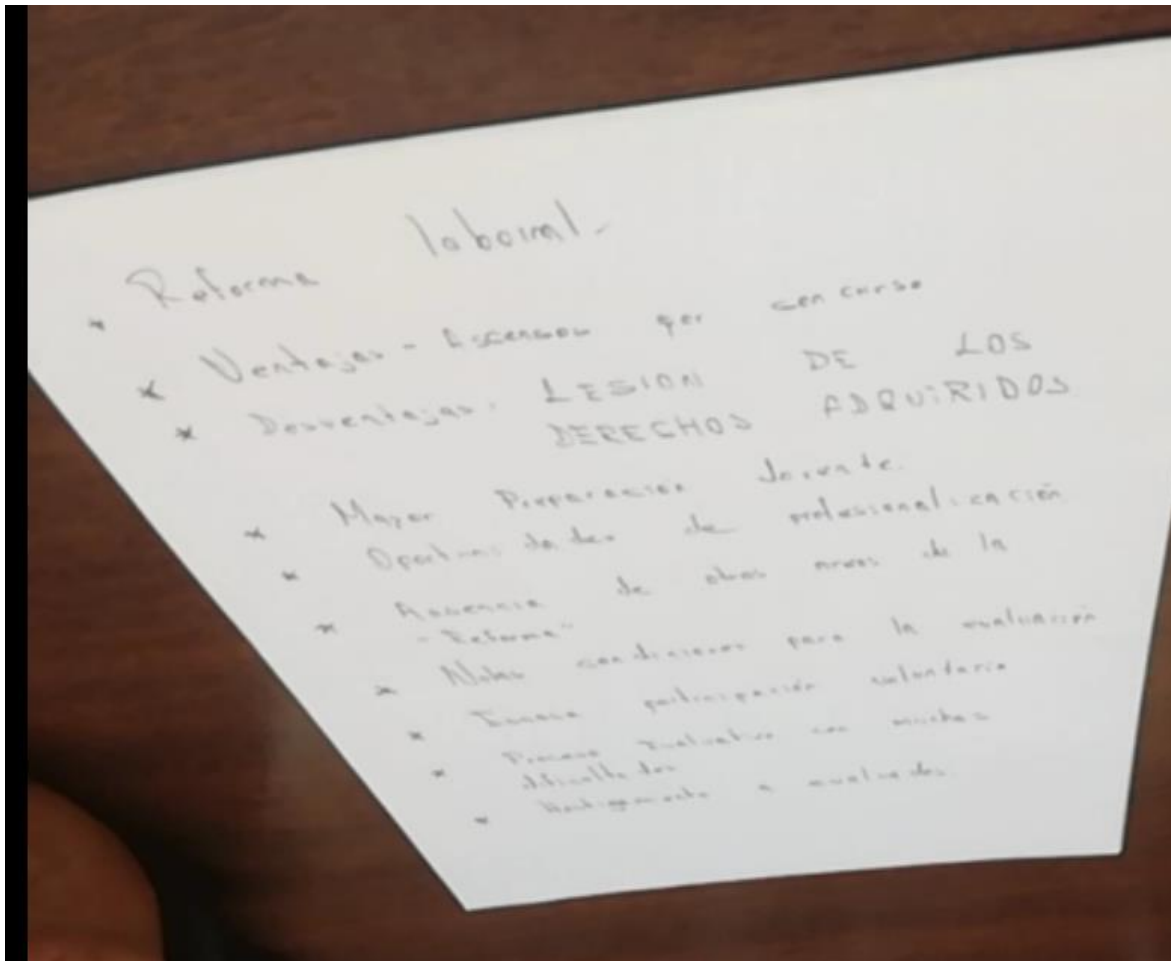 * Reforma laboral-
* Ventajas - Escensos por concurso
* Desventajas. LESION DE LOS
DERECHOS ADQUIRIDOS
* Mayor Preparación docente.
* Oportunidades de profesionalización
* Ausencia de otras areas de la
"Reforma"
* Malas condiciones para la evaluación
* Escasa participación voluntaria
* Proceso Evaluativo con muchas
dificultades
* Hostigamiento a evaluados